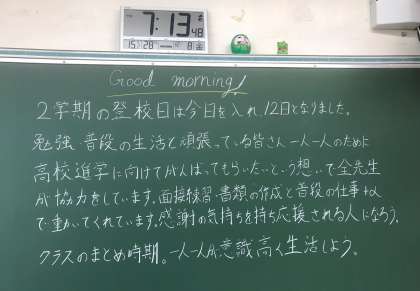 7:13 48
Good morning!
2学期の登校日は今日を入れ、12日となりました。
勉強・普段の生活と頑張っている皆さん一人一人のために
高校進学に向けてがんばってもらいたいという想いで全先生
が協力をしています。面接練習・書類の作成と普段の仕事+α
で動いてくれています。感謝の気持ちを持ち応援される人になろう。
クラスのまとめ時期。一人一人が意識高く生活しよう。